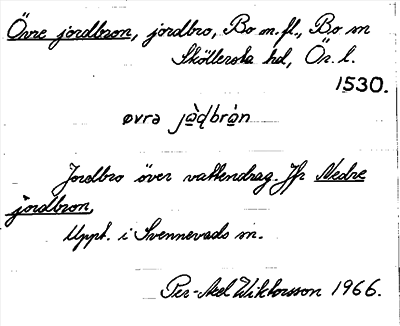 Övre jordbron, jordbro, Bo m.fl., Bo sn
Sköllersta hd, Ör. l.
1530.
øvrə jàd̲brán
Jordbro över vattendrag. Jfr Nedre
jordbron.
Uppt. i Svennevads sn.
Per-Axel Wiktorsson 1966.